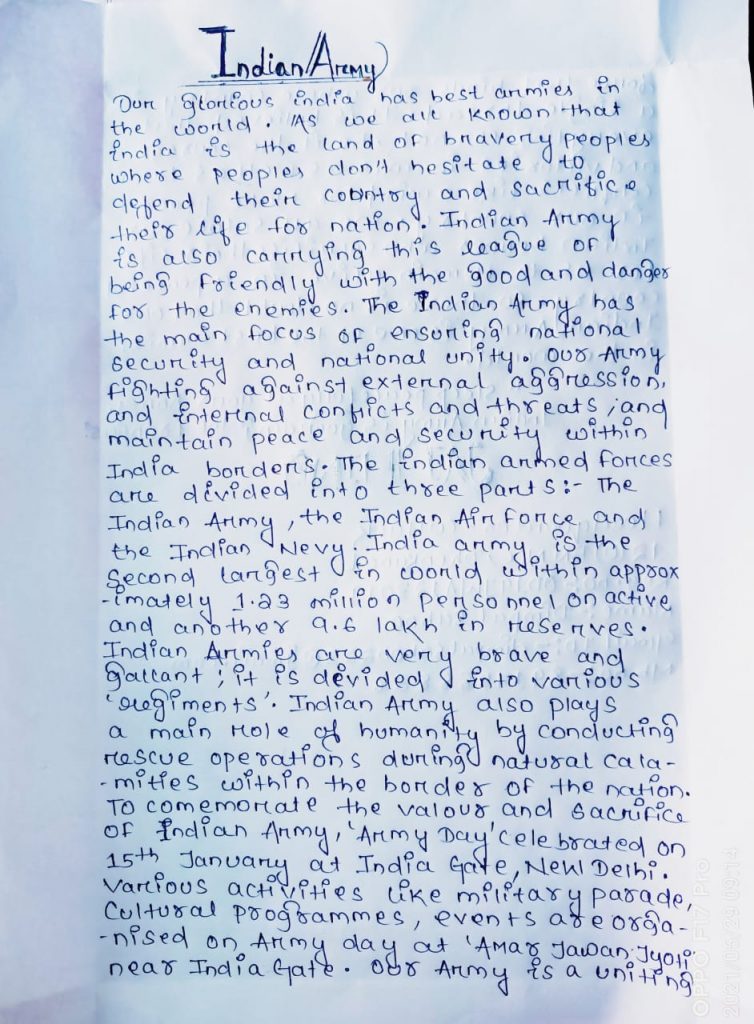 Indian Army
Our glorious india has best armies in
the world. As we all known that
india is the land of bravery peoples
where peoples don't hesitate to
defend their country and sacrifice
their life for nation. Indian Army
is also carrying this league of
being friendly with the good and danger
for the enemies. The Indian Army has
the main focus of ensuring national
security and national unity. Our Army
fighting against external aggression,
and internal conflicts and threats, and
maintain peace and security within
India borders. The indian armed forces
are devided into three parts:- The
Indian Army, the Indian Air force and
the Indian Nevy. India army is the
second largest in world within approx
-imately 1.23 million personnel on active
and another 9.6 lakh in reserves.
Indian Armies are very brave and
gallant; it is devided into various
'regiments'. Indian Army also plays
a main role of humanity by conducting
rescue operations during natural cala-
-mities within the border of the nation.
To comemorate the valour and sacrifice
of Indian Army, 'Army Day' celebrated on
15th January at India Gate, New Delhi.
Various activities like military parade,
Cultural programmes, events are orga-
-nised on Army day at 'Amar Jawan Jyoti
near India Gate. Our Army is a uniting
OPPO F17 Pro
2021/06/29 09:14